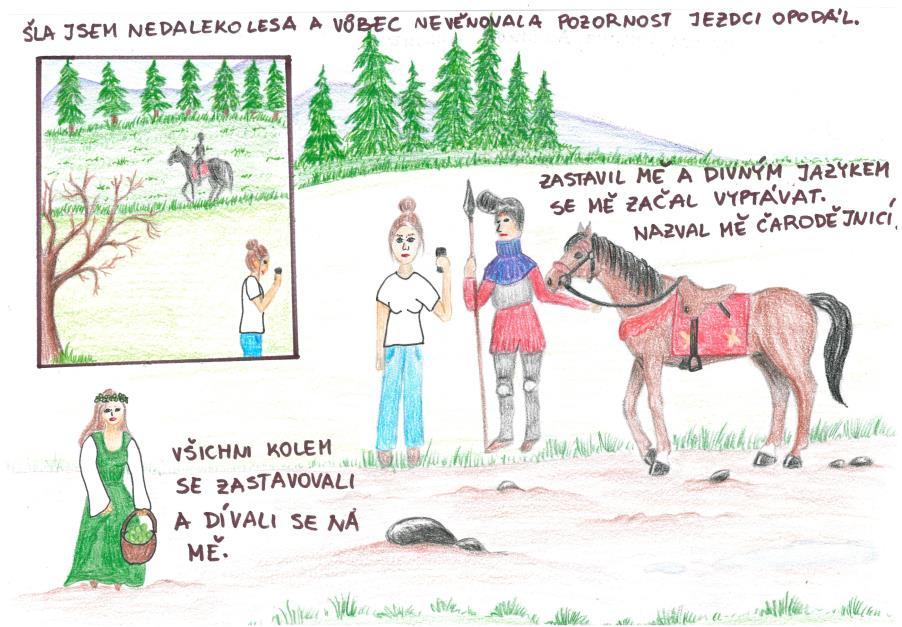 ŠLA JSEM NEDALEKO LESA A VŮBEC NEVĚNOVALA POZORNOST JEZDCI OPODÁL.
ZASTAVIL MĚ A DIVNÝM JAZYKEM
SE MĚ ZAČAL VYPTÁVAT.
NAZVAL MĚ ČARODĚJNICÍ.
VŠICHNI KOLEM
SE ZASTAVOVALI
A DÍVALI SE NA
MĚ.